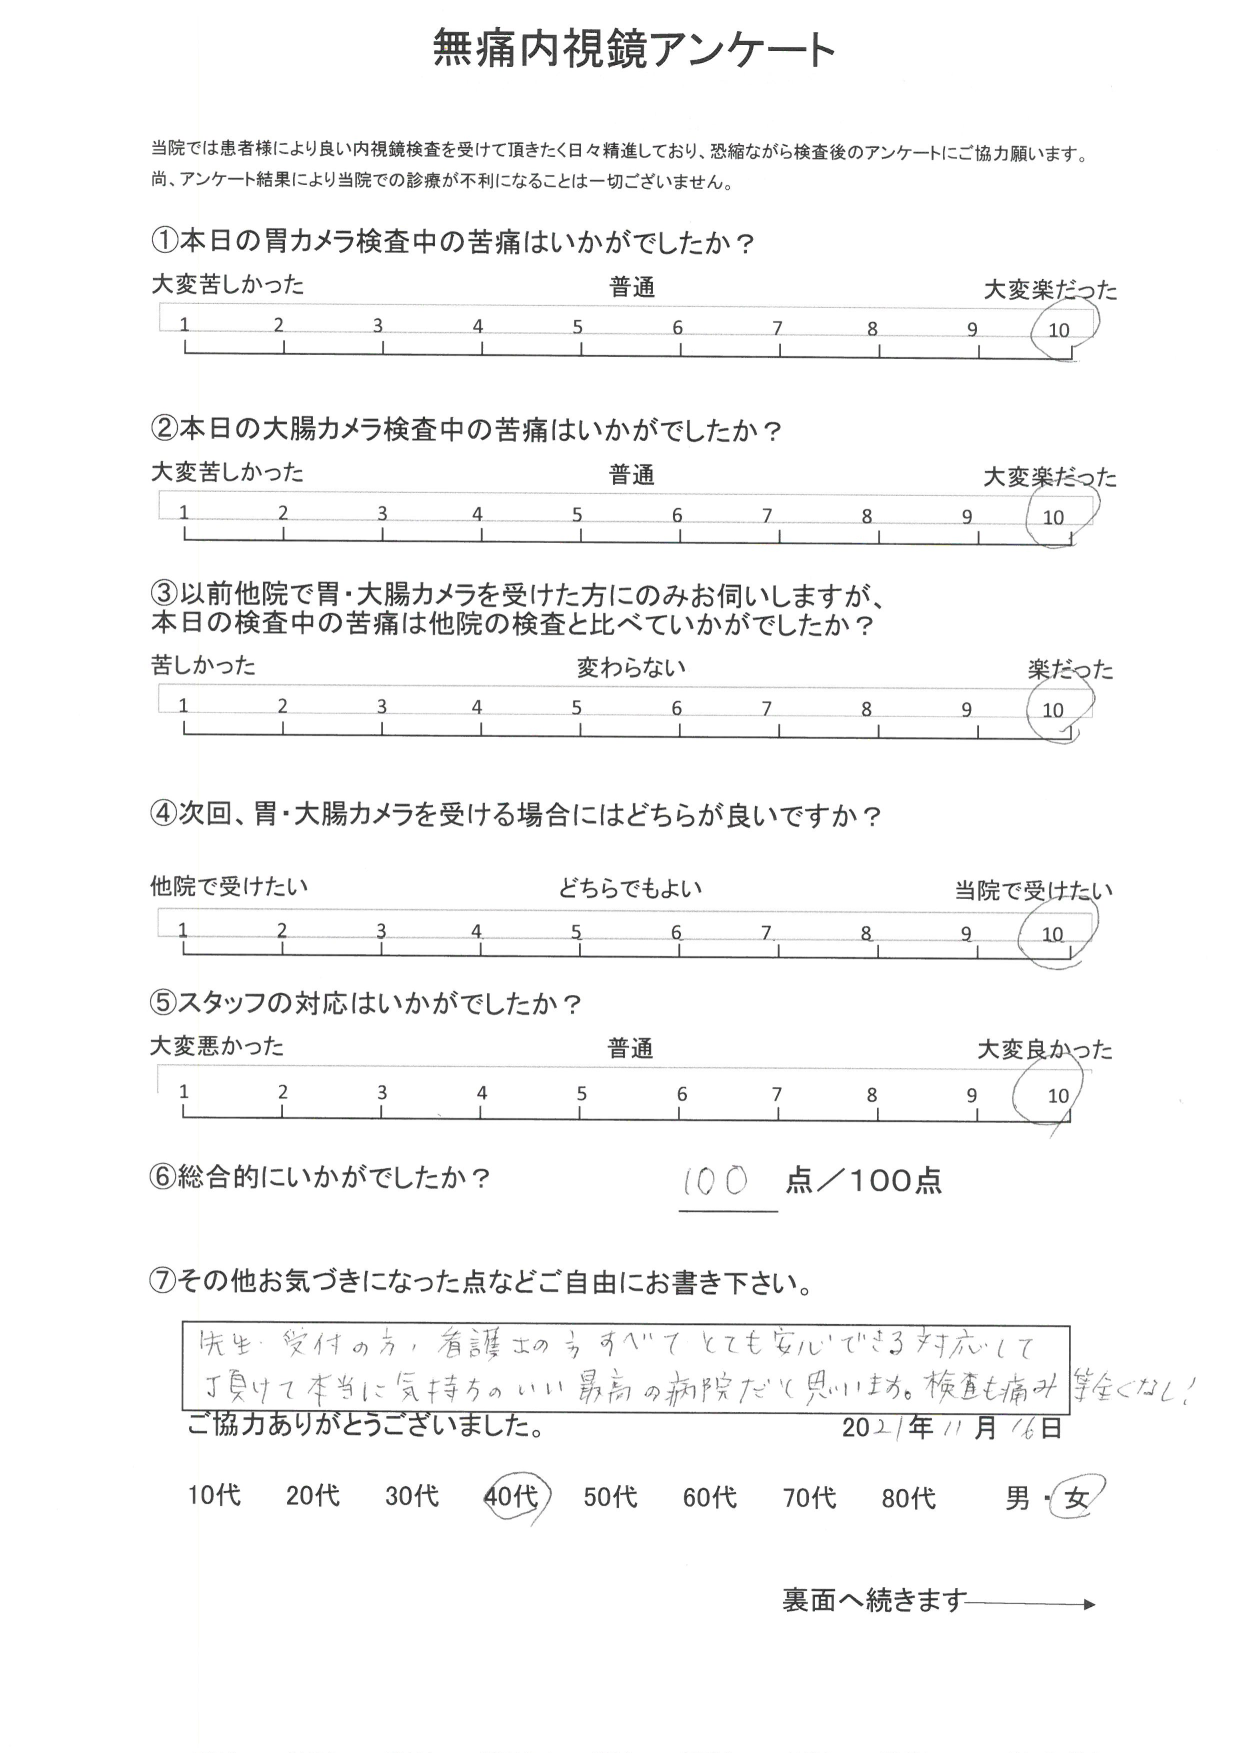 無痛内視鏡アンケート
当院では患者様により良い内視鏡検査を受けて頂きたく日々精進しており、恐縮ながら検査後のアンケートにご協力願います。
尚、アンケート結果により当院での診療が不利になることは一切ございません。
①本日の胃カメラ検査中の苦痛はいかがでしたか？
大変苦しかった 普通 大変楽だった
1 2 3 4 5 6 7 8 9 10
②本日の大腸カメラ検査中の苦痛はいかがでしたか？
大変苦しかった 普通 大変楽だった
1 2 3 4 5 6 7 8 9 10
③以前他院で胃・大腸カメラを受けた方にのみお伺いしますが、
本日の検査中の苦痛は他院の検査と比べていかがでしたか？
苦しかった 変わらない 楽だった
1 2 3 4 5 6 7 8 9 10
④次回、胃・大腸カメラを受ける場合にはどちらが良いですか？
他院で受けたい どちらでもよい 当院で受けたい
1 2 3 4 5 6 7 8 9 10
⑤スタッフの対応はいかがでしたか？
大変悪かった 普通 大変良かった
1 2 3 4 5 6 7 8 9 10
⑥総合的にいかがでしたか？ 100 点／100点
⑦その他お気づきになった点などご自由にお書き下さい。
先生・受付の方、看護士の方すべてとても安心できる対応して
頂けて本当に気持ちのいい最高の病院だと思います。検査も痛み等全くなし!
ご協力ありがとうございました。 2021年11月16日
10代 20代 30代 40代 50代 60代 70代 80代 男・女
裏面へ続きます